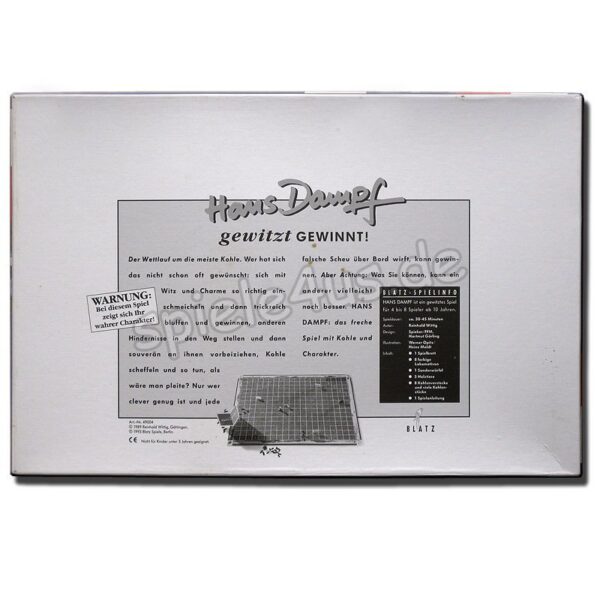 Hans Dampf
gewitzt GEWINNT!
Der Wettlauf um die meiste Kohle. Wer hat sich
das nicht schon oft gewünscht: sich mit
Witz und Charme so richtig ein-
schmeicheln und dann trickreich
bluffen und gewinnen, anderen
Hindernisse in den Weg stellen und dann
souverän an ihnen vorbeiziehen, Kohle
scheffeln und so tun, als
wäre man pleite? Nur wer
clever genug ist und jede
WARNUNG:
Bei diesem Spiel
zeigt sich Ihr
wahrer Charakter!
falsche Scheu über Bord wirft, kann gewin-
nen. Aber Achtung: Was Sie können, kann ein
anderer vielleicht
noch besser. HANS
DAMPF: das freche
Spiel mit Kohle und
Charakter.
BLATZ-SPIELINFO
HANS DAMPF ist ein gewitztes Spiel
für 4 bis 8 Spieler ab 10 Jahren.
Spieldauer: ca. 30-45 Minuten
Autor: Reinhold Wittig
Design: Spieler-PFM,
Hartmut Görling
Illustration: Werner Opitz
Heinz Meldt
Inhalt: 1 Spielbrett
8 farbige
Lokomotiven
1 Sonderwürfel
2 Holztiere
8 Kohlenverstecke
und viele Kohlen-
stücke
1 Spielanleitung
BLATZ
Art.-Nr. 49004
© 1989 Reinhold Wittig, Göttingen.
© 1995 Blatz Spiele, Berlin.
CE Nicht für Kinder unter 3 Jahren geeignet.
spiele4us.de